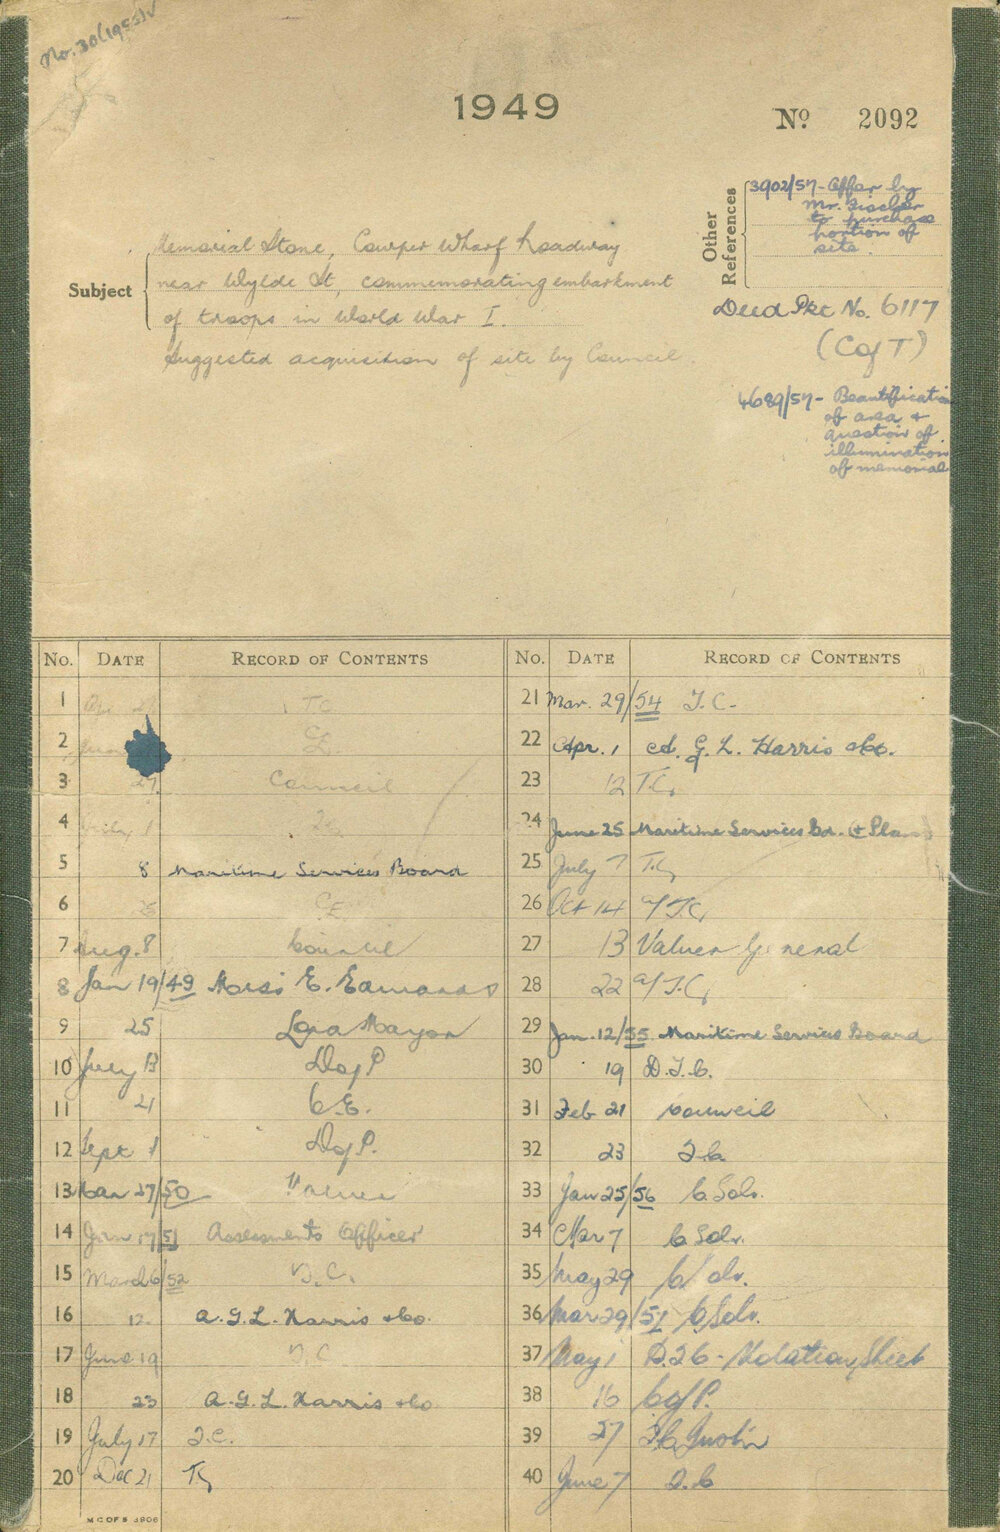 No. 30(1953)
1949
No 2092
Subject
Memorial Stone, Cowper Wharf Roadway
near Wylde St, commemorating embarkment
of troops in World War I.
Suggested acquisition of site by Council.
Other References
3902/57 - Offer by
Mr. Fischer
to purchase
portion of
site.
Deed Pkt No. 6117
(C of T)
4689/57 - Beautification
of area +
question of
illumination
of memorial
No. DATE RECORD OF CONTENTS
1 T.C.
2
3 27 Council
4 July 1
5 8 Maritime Services Board
6 CE
7 Aug. 8 Council
8 Jan 19/49 E. Edwards
9 25 Lord Mayor
10 July 13 D of P
11 21 C.E.
12 Sept 1 D of P.
13 Mar 27/50
14 Jan 17/51 Assessments Officer
15 March 6/52
16 12. A.G.L. Harris & Co.
17 June 19
18 23 A.G.L. Harris & Co
19 July 17 T.C.
20 Dec 21
No. DATE RECORD OF CONTENTS
21 Mar. 29/54 T.C.
22 Apr. 1 A. G. L. Harris & Co.
23 12 T.C.
24 June 25 Maritime Services Bd. (+ Plan)
25 July 7 T.C.
26 Oct 14 a/T.C.
27 13 Valuer General
28 22 a/T.C.
29 Jan. 12/55 Maritime Services Board
30 19 D.T.C.
31 Feb 21 Council
32 23 T.C.
33 Jan 25/56 C Solr.
34 Mar 7 C Solr.
35 May 29
36 Mar 29/57 C Solr.
37 May 1 D.26 - Notation Sheet
38 16 C of P.
39 27
40 June 7 T.C
M C OF S 3906